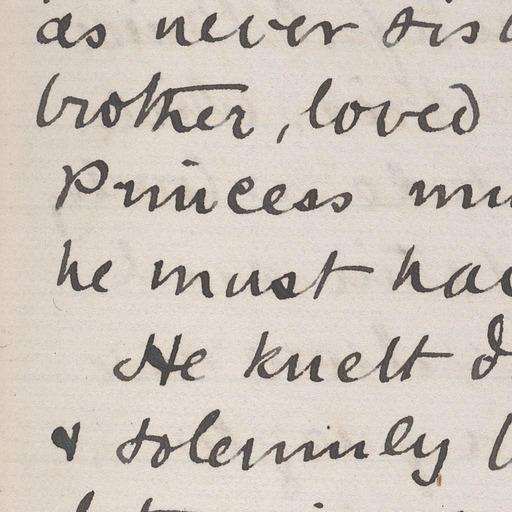 as never sis
brother, loved
Princess mu
he must hav
He knelt d
& solemnly